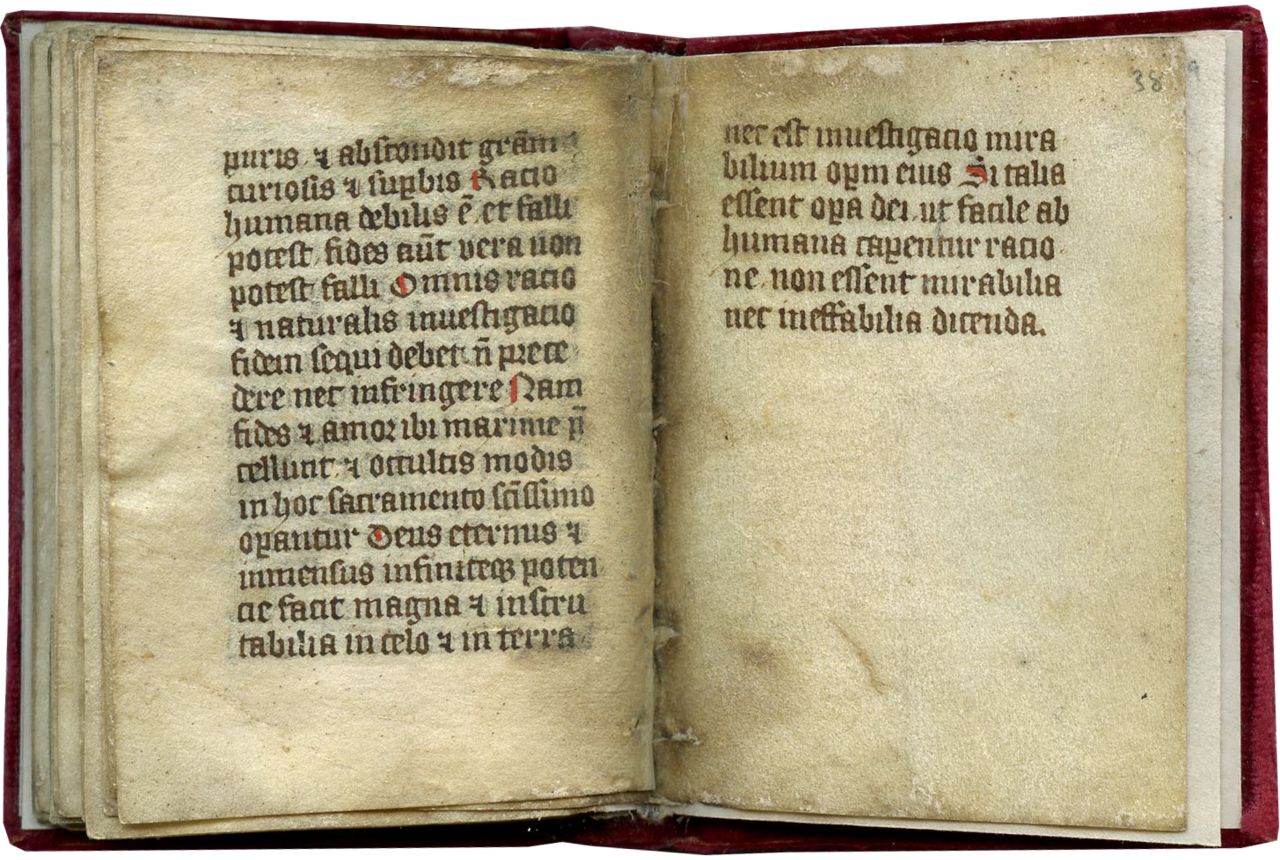 puris ⁊ abscondit grām
curiosis ⁊ suꝑbis Racio
humana debilis ē et falli
potest fides aūt vera non
potest falli Omnis racio
⁊ naturalis inuestigacio
fidem sequi debet n̄ prece
dere nec infringere Nam
fides ⁊ amor ibi maxime p̄
cellunt ⁊ occultis modis
in hoc sacramento sc̄issimo
oꝑantur Deus eternus ⁊
inmensus infiniteqꝫ poten
cie facit magna ⁊ inscru
tabilia in celo ⁊ in terra
38
nec est inuestigacio mira
bilium oꝑm eius Si talia
essent oꝑa dei ut facile ab
humana caꝑentur racio
ne non essent mirabilia
nec ineffabilia dicenda.